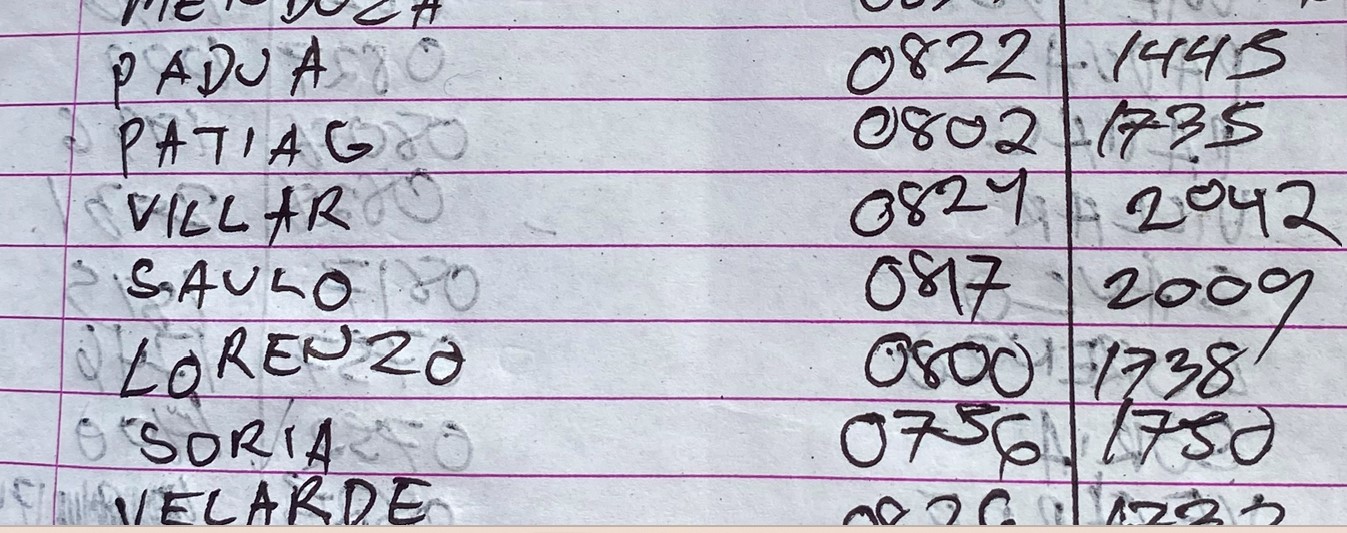 MENDOZA
PADUA 0822 1445
PATIAG 0802 1735
VILLAR 0824 2042
SAULO 0817 2009
LORENZO 0800 1738
SORIA 0756 1750
VELARDE 0826